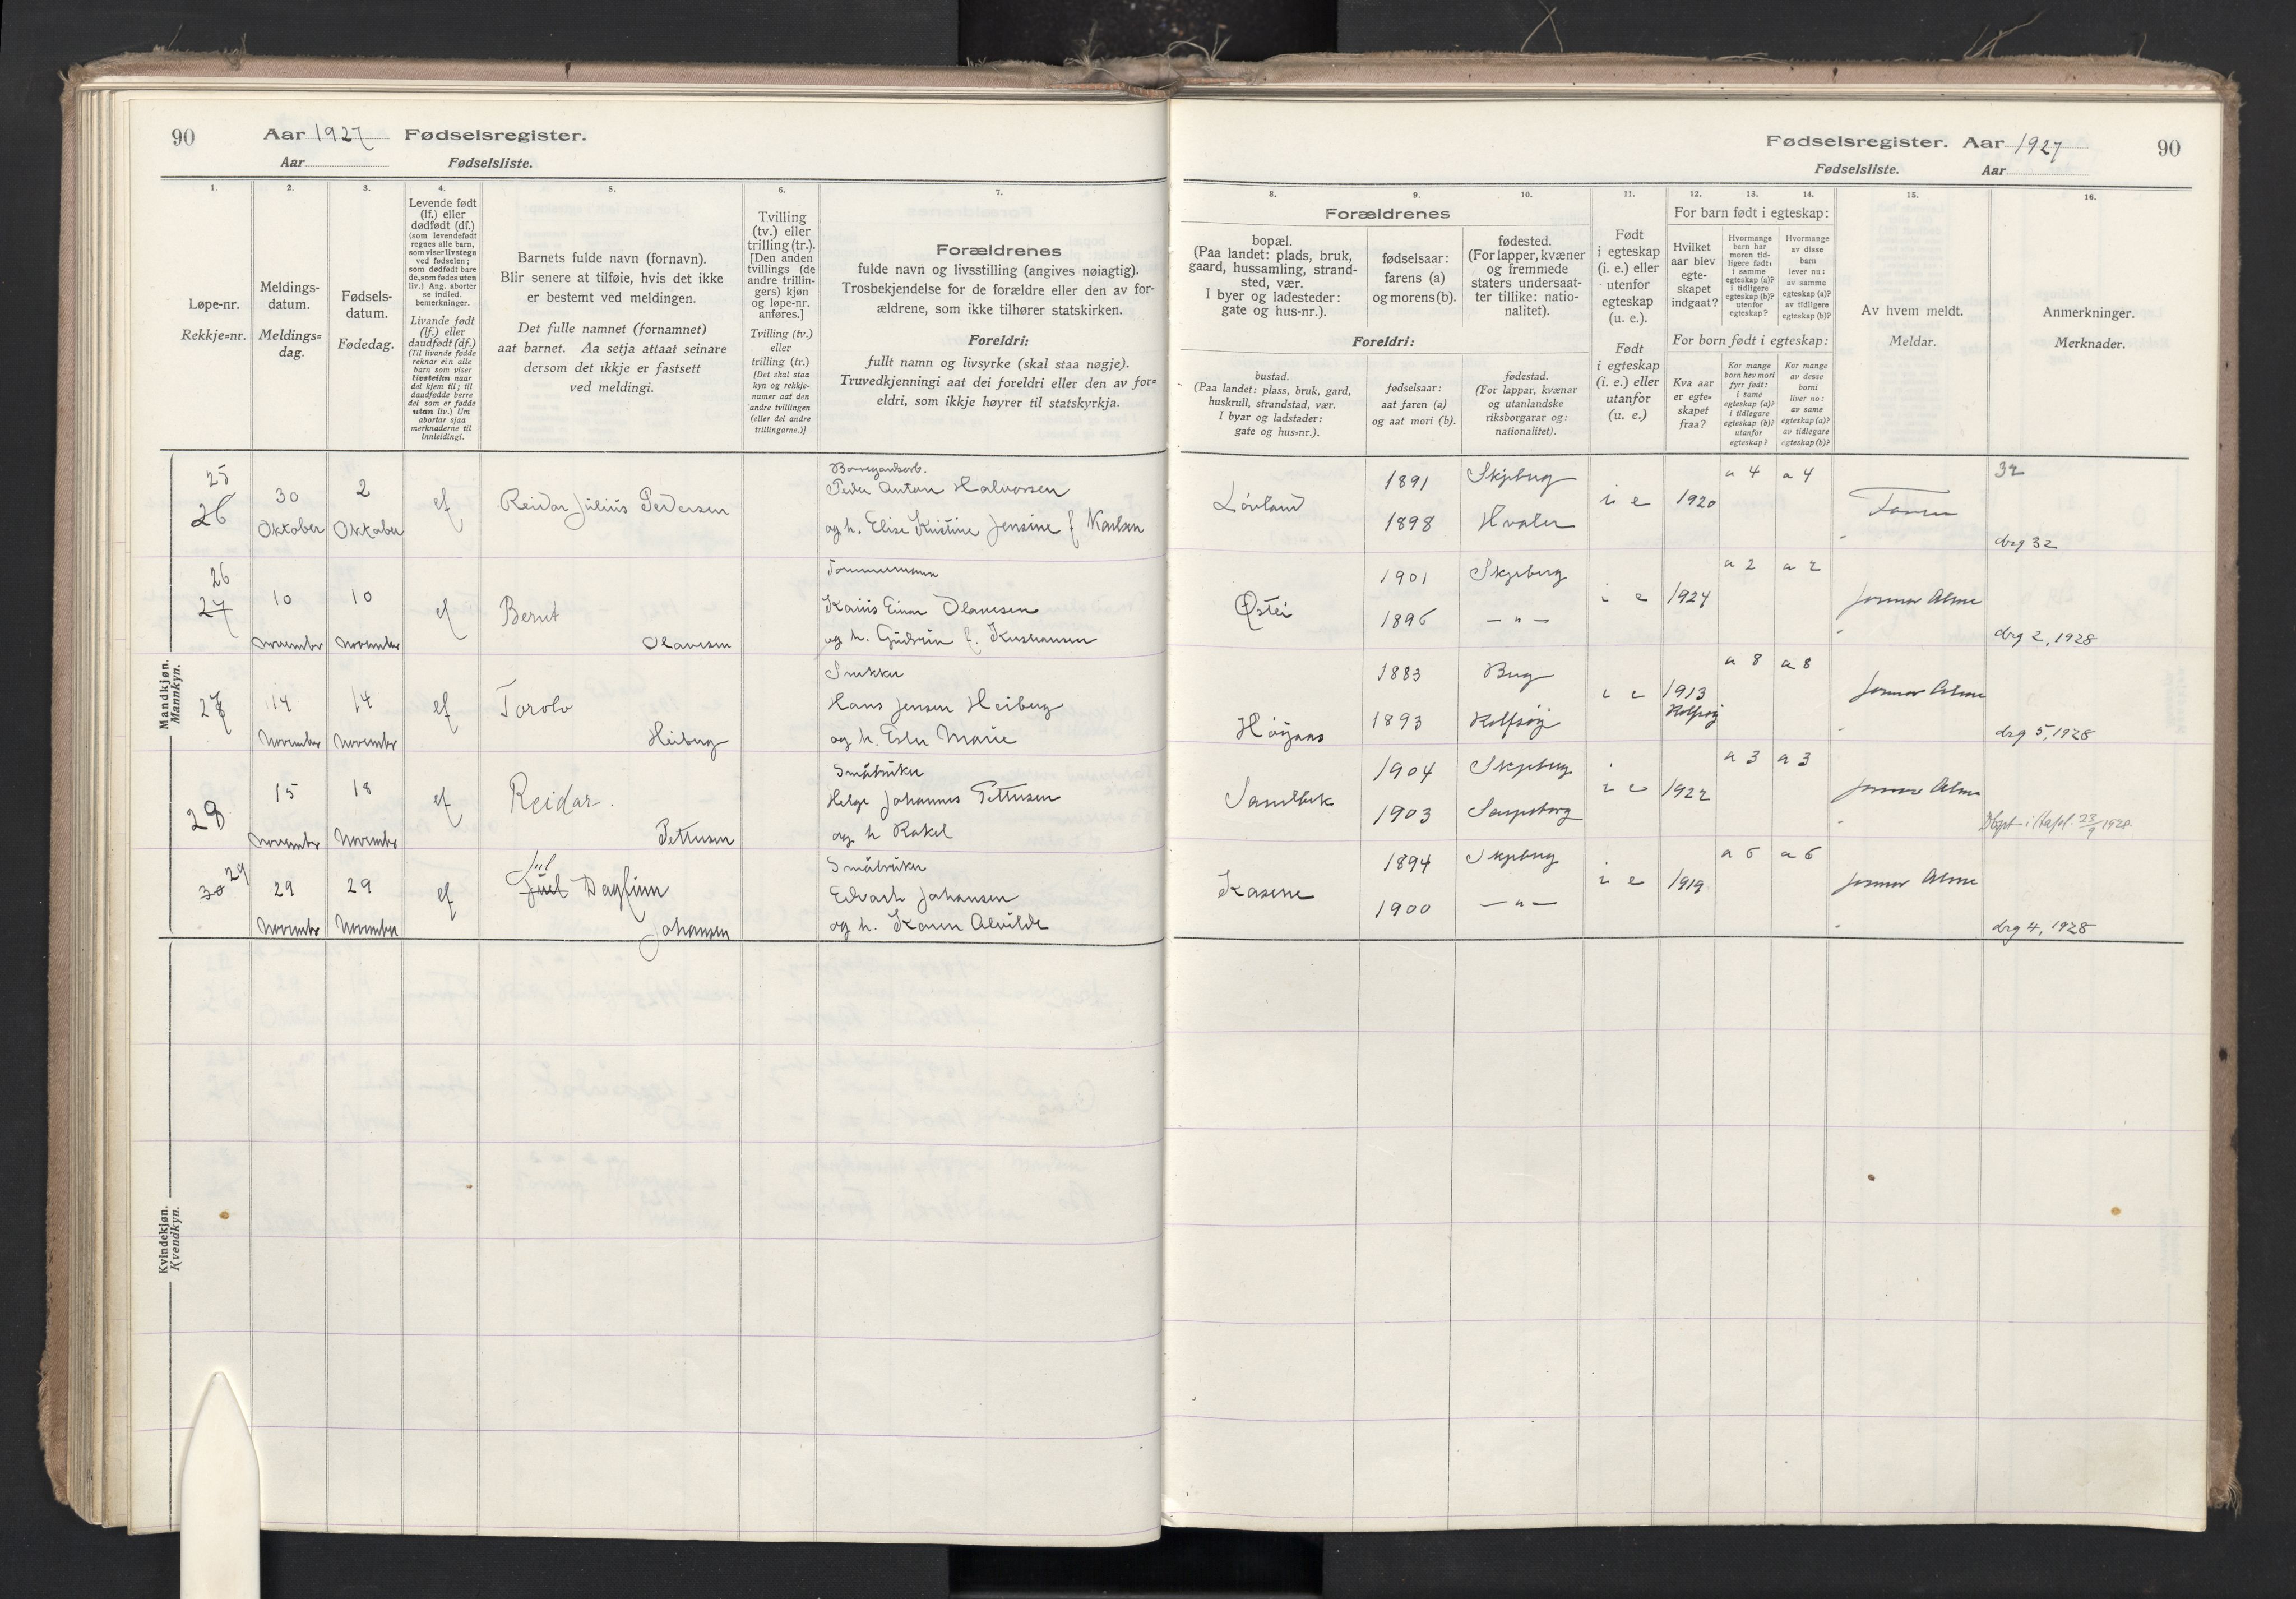 90
Aar 1927 Fødselsregister.
Aar Fødselsliste.
1.
2.
3.
4.
5.
6.
7.
Løpe-nr.
Rekkje=nr.
Meldings-
datum.
Meldings=
dag.
Fødsels-
datum.
Fødedag.
Levende født
(lf.) eller
dødfødt (df.)
(som levendefødt
regnes alle barn,
som viser livstegn
ved fødselen;
som dødfødt bare
de, som fødes uten
liv.) Ang. aborter
se indled.
bemerkninger.
Livande født
(lf.) eller
daudfødt (df.)
(Til livande fødde
reknar ein alle
born som viser
livsteikn naar
dei kjem til; til
daudfødde berre
dei som er fødde
utan liv.) Um
abortar sjaa
merknaderne til
innleidingi.
Barnets fulde navn (fornavn).
Blir senere at tilføie, hvis det ikke
er bestemt ved meldingen.
Det fulle namnet (fornamnet)
aat barnet. Aa setja attaat seinare
dersom det ikkje er fastsett
ved meldingi.
Tvilling
(tv.) eller
trilling (tr.).
[Den anden
tvillings (de
andre trillin-
gers) kjøn
og løpe-nr.
anføres.]
Tvilling (tv.)
eller
trilling (tr.)
[Det skal staa
kyn og rekkje-
numer aat den
andre tvillingen
(eller dei andre
trillingarne.)]
Forældrenes
fulde navn og livsstilling (angives nøiagtig).
Trosbekjendelse for de forældre eller den av for-
ældrene, som ikke tilhører statskirken.
Foreldri:
fullt namn og livsyrke (skal staa nøgje).
Truvedkjenningi aat dei foreldri eller den av for=
eldri, som ikkje høyrer til statskyrkja.
Mandkjøn.
Mannkyn.
25
26
30
Oktober
2
Oktober
ef
Reidar Julius Pedersen
Peder Anton Halvorsen
og h. Elise Kristine Jensine f Karlsen
26
27
10
november
10
november
ef
Bernt
Olavesen
Tømmermann
Einar Olavesen
og h. Gudrun f. Kristiansen
27
14
November
14
November
ef
Torolv
Heiberg
Snekker
Hans Jensen Heiberg
og h. Ester Marie
28
15
November
18
November
ef
Reidar.
Pettersen
Småbruker
Helge Johannes Pettersen
og h Rakel
30 29
29
November
29
November
ef
Jul
Juel Dagfinn
Johansen
Småbruker
Edvart Johansen
og h. Karen Alvilde
Kvindekjøn.
Kvendkyn.
Fødselsregister. Aar 1927
90
Fødselsliste. Aar
8.
9.
10.
11.
12.
13.
14.
15.
16.
Forældrenes
bopæl.
(Paa landet: plads, bruk,
gaard, hussamling, strand-
sted, vær.
I byer og ladesteder:
gate og hus-nr.).
fødselsaar:
farens (a)
og morens (b).
fødested.
(For lapper, kvæner
og fremmede
staters undersaat-
ter tillike: natio-
nalitet).
Foreldri:
bustad.
(Paa landet: plass, bruk, gard,
huskrull, strandstad, vær.
I byar og ladstader:
gate og hus=nr.).
fødselsaar:
aat faren (a)
og aat mori (b).
fødestad.
(For lappar, kvænar
og utanlandske
riksborgarar og:
nationalitet).
Født
i egteskap
(i. e.) eller
utenfor
egteskap
(u. e.).
Født
i egteskap
(i. e.) eller
utanfor
(u. e.)
For barn født i egteskap:
Hvilket
aar blev
egte-
skapet
indgaat?
Hvormange
barn har
moren tid-
ligere født:
i samme
egteskap (a)?
i tidligere
egteskap (b)?
utenfor
egteskap?
Hvormange
av disse
barn
lever nu:
av samme
egteskap (a)?
av tidligere
egteskap (b)?
For born født i egteskap:
Kva aar
er egte-
skapet
fraa?
Kor mange
born hev mori
fyrr født:
i same
egteskap (a)?
i tidlegare
egteskap (b)?
utanfor
egteskap?
Kor mange
av desse
borni
liver no:
av same
egteskap (a)?
av tidlegare
egteskap (b)?
Av hvem meldt.
Meldar.
Anmerkninger.
Merknader.
Lövland
1891
1898
Skjeberg
Hvaler
i e
1920
a 4
a 4
Faren
32
drg 32
1901
1896
Skjeberg
— " —
i e
1924
a 2
a 2
Jormor Alme
drg 2, 1928
Höyaas
1883
1893
Berg
Rolfsöy
i e
1913
Rolfsöy
a 8
a 8
Jormor Alme
drg 5, 1928
Sandbek
1904
1903
Skjeberg
Sarpsborg
i e
1922
a 3
a 3
Jormor Alme
23/9 1928.
Kasene
1894
1900
Skjeberg
— " —
i e
1919
a 6
a 6
Jormor Alme
drg 4, 1928